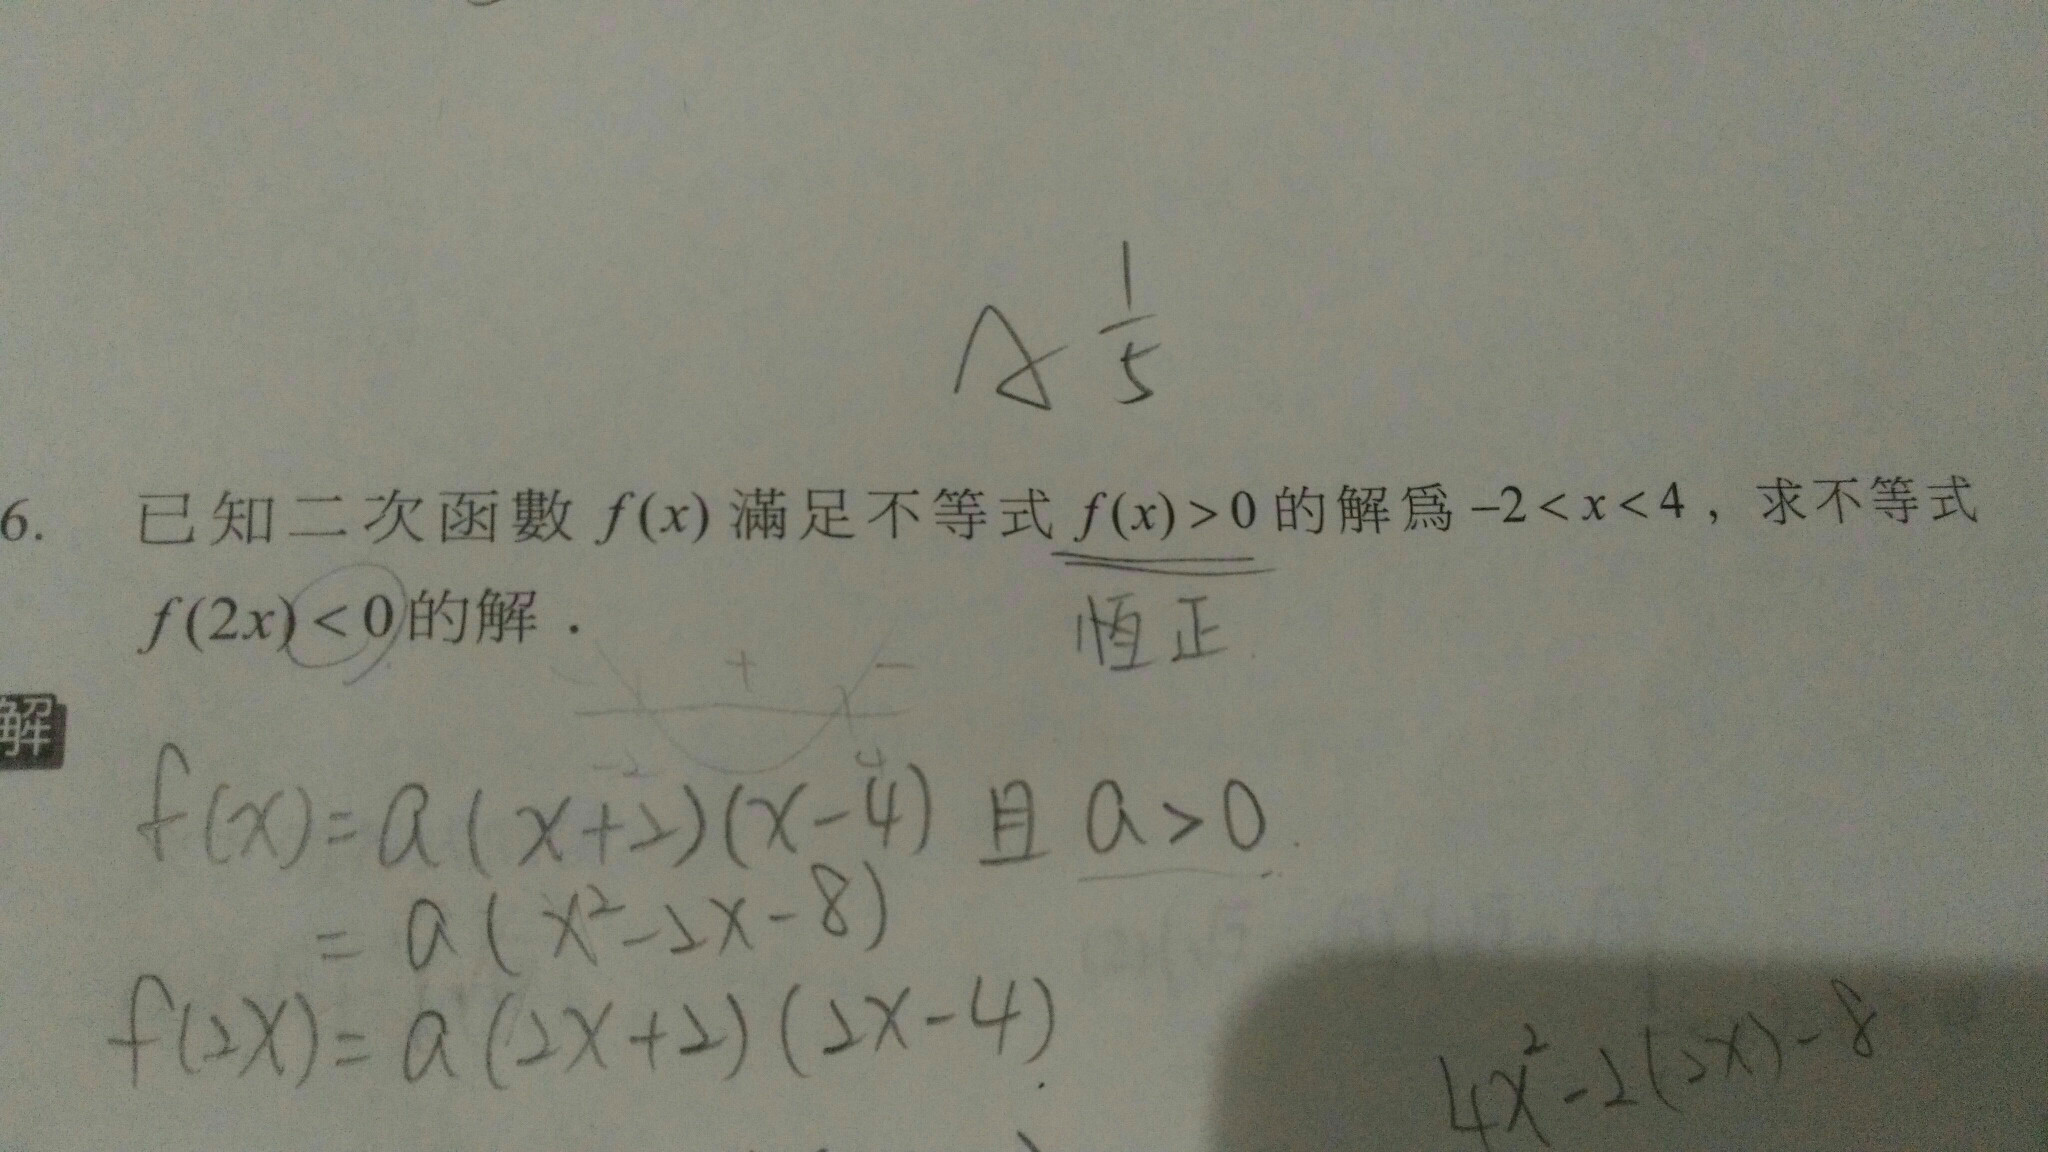 A 1/5
6. 已知二次函數 f(x) 滿足不等式 f(x)>0 的解爲 -2<x<4，求不等式
f(2x)<0 的解．
恆正
- + -
-2 4
解
f(x)=a(x+2)(x-4) 且 a>0.
=a(x²-2x-8)
f(2x)=a(2x+2)(2x-4)
4x²-2(2x)-8